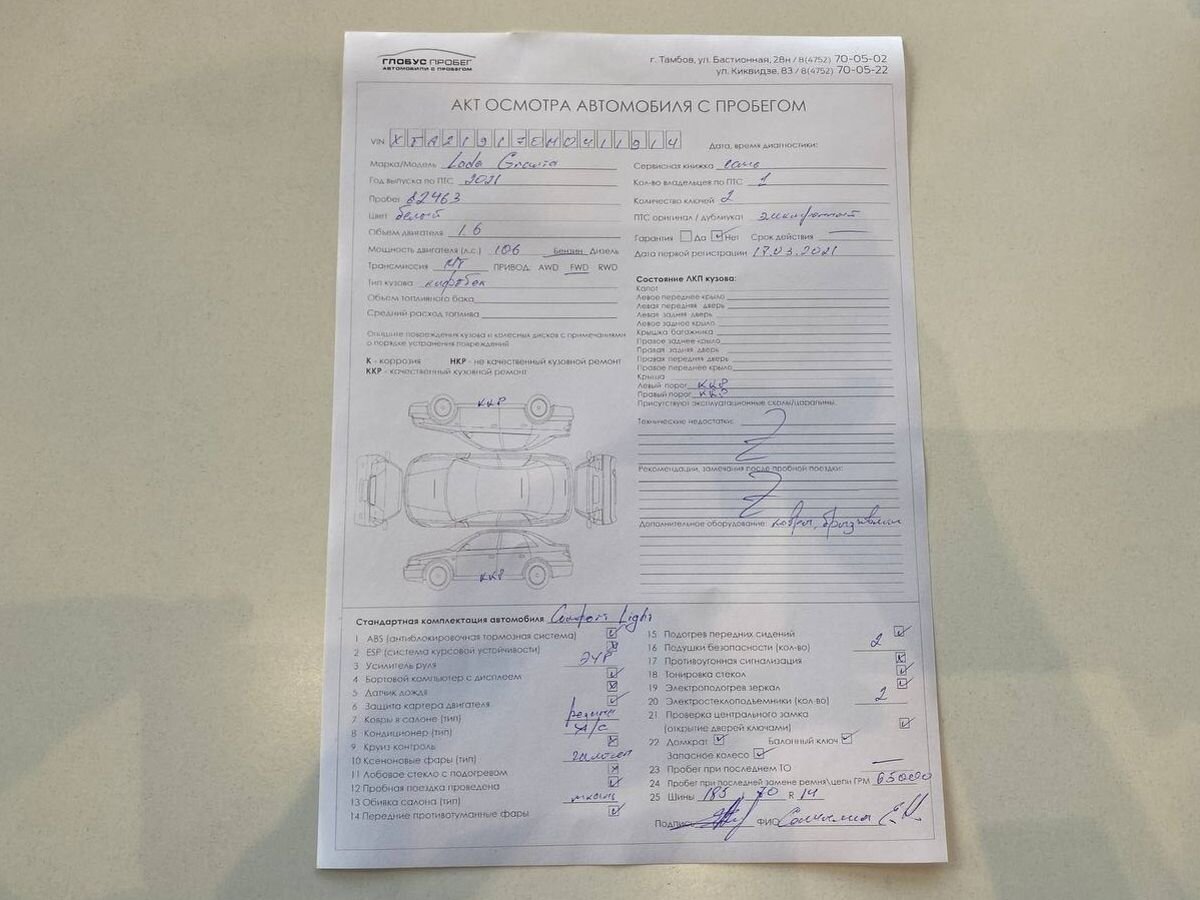 ГЛОБУС ПРОБЕГ
АВТОМОБИЛИ С ПРОБЕГОМ
г. Тамбов, ул. Бастионная, 28н / 8(4752) 70-05-02
ул. Киквидзе, 83 / 8(4752) 70-05-22
АКТ ОСМОТРА АВТОМОБИЛЯ С ПРОБЕГОМ
VIN
Дата, время диагностики:
Марка/Модель Lada Granta
Год выпуска по ПТС 2021
Пробег 82463
Цвет белый
Объем двигателя 1.6
Мощность двигателя (л.с.) 106 Бензин Дизель
Трансмиссия МТ ПРИВОД: AWD FWD RWD
Тип кузова лифтбек
Объем топливного бака
Средний расход топлива
Опишите повреждения кузова и колесных дисков с примечаниями
о порядке устранения повреждений
К - коррозия НКР - не качественный кузовной ремонт
ККР - качественный кузовной ремонт
ККР
ККР
Сервисная книжка есть
Кол-во владельцев по ПТС 1
Количество ключей 2
ПТС оригинал / дубликат
Гарантия Да Нет Срок действия —
Дата первой регистрации 17.03.2021
Состояние ЛКП кузова:
Капот
Левое переднее крыло
Левая передняя дверь
Левая задняя дверь
Левое заднее крыло
Крышка багажника
Правое заднее крыло
Правая задняя дверь
Правая передняя дверь
Правое переднее крыло
Крыша
Левый порог ККР
Правый порог ККР
Присутствуют эксплуатационные сколы/царапины.
Технические недостатки: Z
Рекомендации, замечания после пробной поездки: Z
Дополнительное оборудование: ковры, брызговики
Стандартная комплектация автомобиля Comfort Light
1 ABS (антиблокировочная тормозная система)
2 ESP (система курсовой устойчивости)
3 Усилитель руля ЭУР
4 Бортовой компьютер с дисплеем
5 Датчик дождя
6 Защита картера двигателя
7 Ковры в салоне (тип) резина
8 Кондиционер (тип) А/С
9 Круиз контроль
10 Ксеноновые фары (тип) галоген
11 Лобовое стекло с подогревом
12 Пробная поездка проведена
13 Обивка салона (тип) ткань
14 Передние противотуманные фары
15 Подогрев передних сидений
16 Подушки безопасности (кол-во) 2
17 Противоугонная сигнализация
18 Тонировка стекол
19 Электроподогрев зеркал
20 Электростеклоподъемники (кол-во) 2
21 Проверка центрального замка
(открытие дверей ключами)
22 Домкрат Балонный ключ
Запасное колесо
23 Пробег при последнем ТО —
24 Пробег при последней замене ремня\цепи ГРМ 65000
25 Шины 185 70 R 14
Подпись ФИО